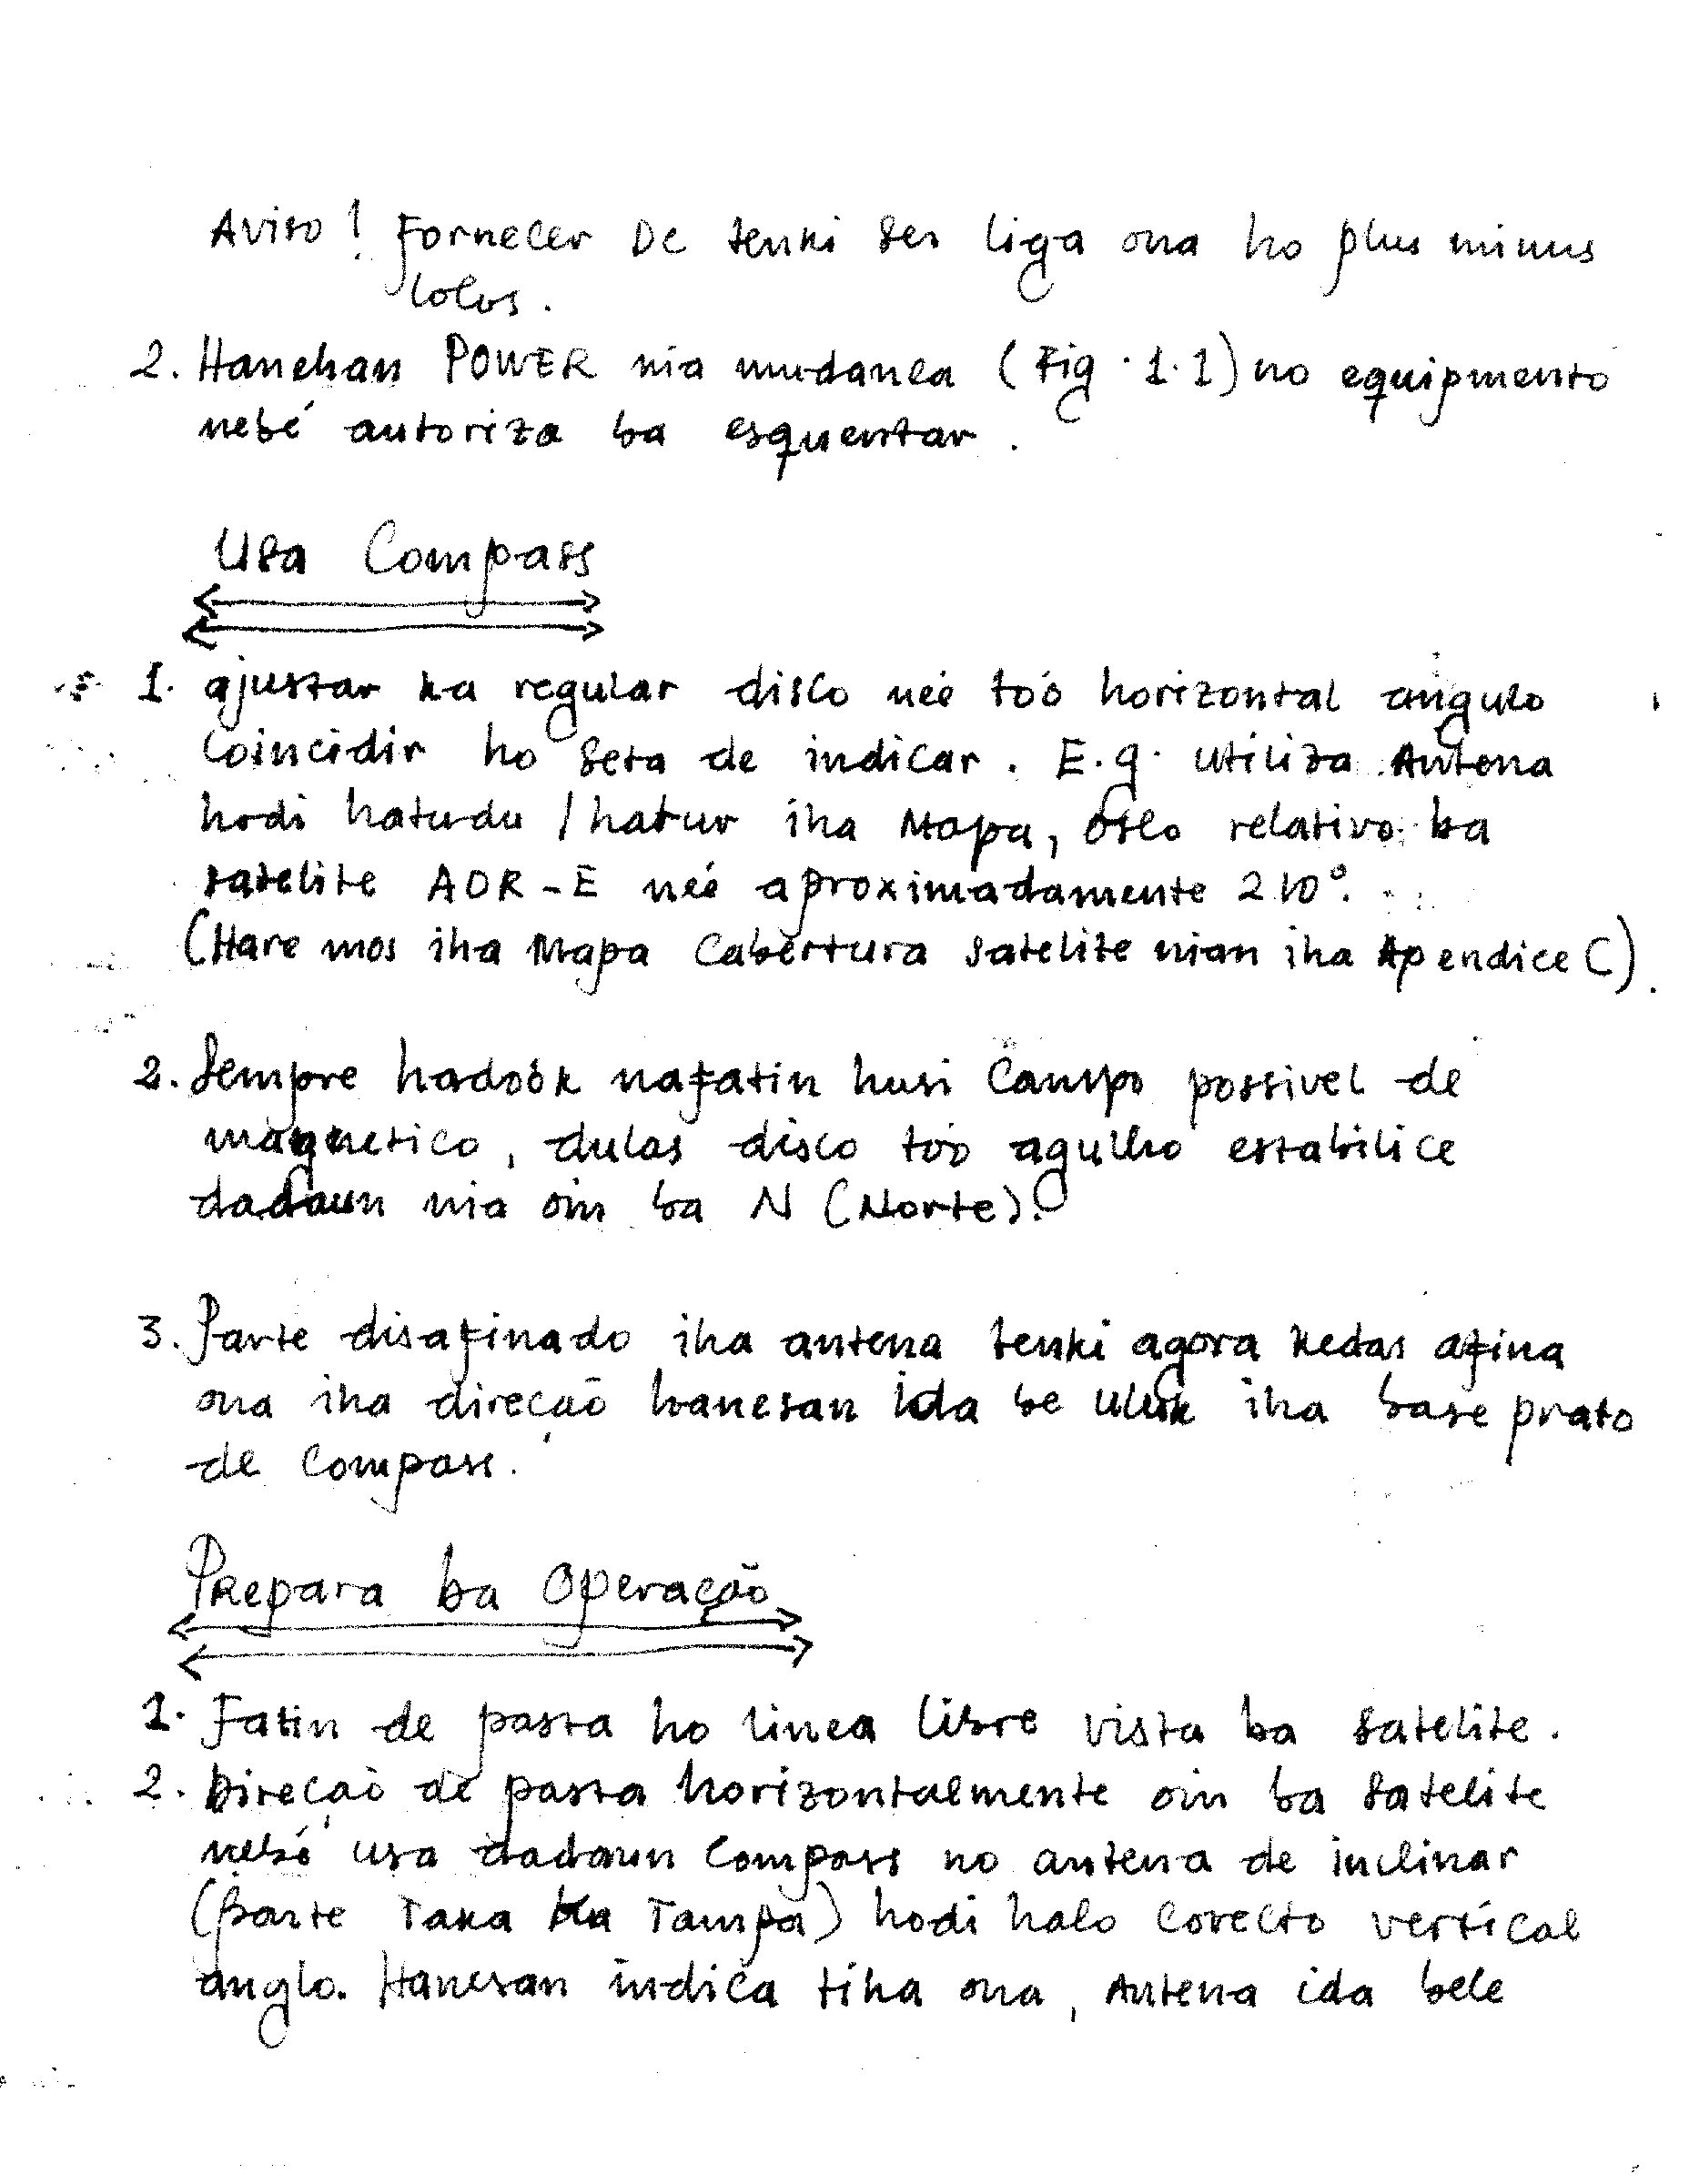 Aviso! Fornecer DC tenki ser liga ona ho plus minus
lolos.
2. Hanehan POWER nia mudanca (Fig. 1.1) no equipmento
nebé autoriza ba esquentar.
Usa Compass
1. ajustar ka regular disco neé toó horizontal angulo
Coincidir ho Seta de indicar. E.g. utiliza Antena
hodi hatudu / hatur iha Mapa, Oslo relativo ba
satelite AOR-E neé aproximadamente 210°.
(Hare mos iha Mapa Cabertura satelite nian iha Apendice C).
2. Sempre hadoók nafatin husi Campo possivel de
magnetico, dulas disco toó agulho estabilice
dadaun nia oin ba N (Norte).
3. Parte disafinado iha antena tenki agora kedas afina
ona iha direcão hanesan ida be uluk iha base prato
de Compass.
Prepara ba Operação
1. Fatin de pasta ho linea libre vista ba satelite.
2. Direcão de pasta horizontalmente oin ba satelite
nebé usa dadaun Compass no antena de inclinar
(parte Taka ka Tampa) hodi halo corecto vertical
anglo. Hanesan indica tiha ona, Antena ida bele